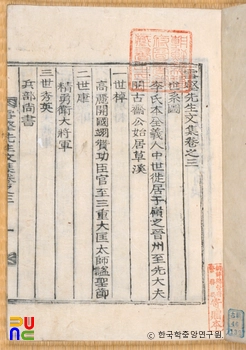 雪壑先生文集卷之三
世系圖
李氏本全義人中世徙居于嶺之晉州至先大夫
古齋公始居草溪
一世棹
高麗開國翊贊功臣官至三重大匡太師諡聖節
二世康
精勇衛大將軍
三世秀英
兵部尚書
雪壑先生文集卷之三
PUNC
ⓒ 한국학중앙연구원